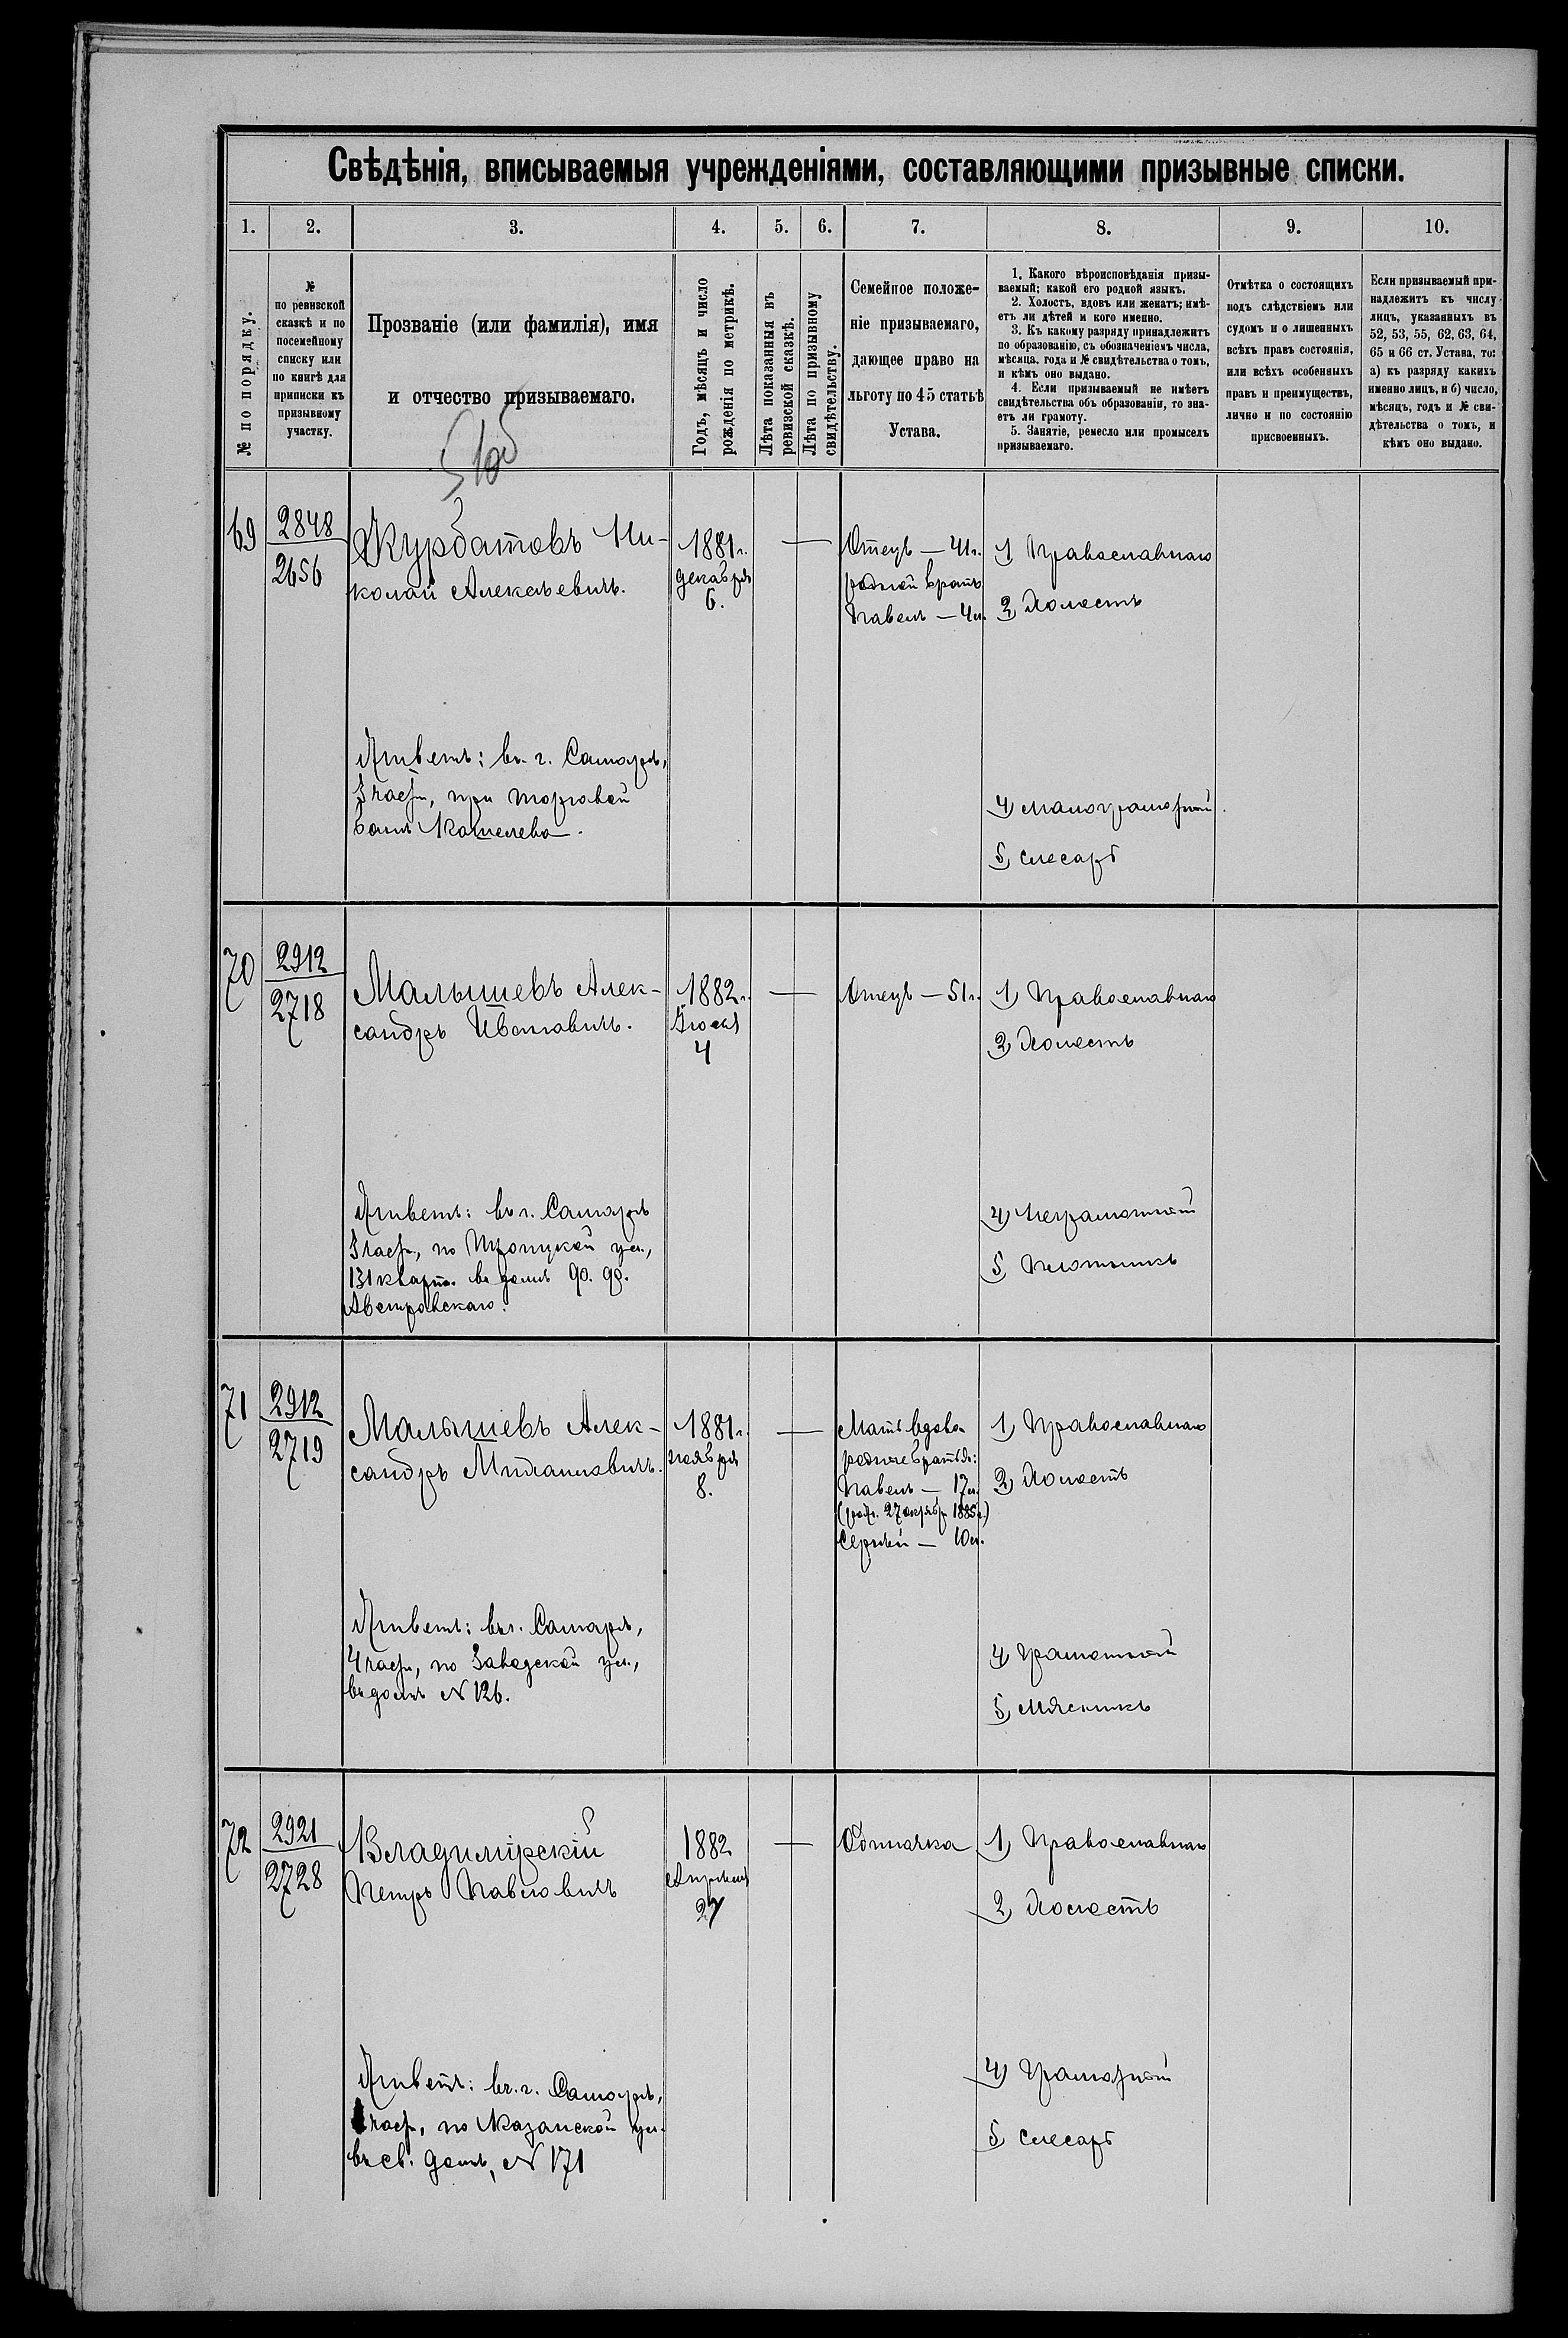 Свѣдѣнія, вписываемыя учрежденіями, составляющими призывные списки.
1. 2. 3. 4. 5. 6. 7. 8. 9. 10.
№ по порядку.
№
по ревизской
сказкѣ и по
посемейному
списку или
по книгѣ для
приписки къ
призывному
участку.
Прозваніе (или фамилія), имя
и отчество призываемаго.
Годъ, мѣсяцъ и число
рожденія по метрикѣ.
Лѣта показанныя въ
ревизской сказкѣ.
Лѣта по призывному
свидѣтельству.
Семейное положе-
ніе призываемаго,
дающее право на
льготу по 45 статьѣ
Устава.
1. Какого вѣроисповѣданія призы-
ваемый; какой его родной языкъ.
2. Холостъ, вдовъ или женатъ; имѣ-
етъ ли дѣтей и кого именно.
3. Къ какому разряду принадлежитъ
по образованію, съ обозначеніемъ числа,
мѣсяца, года и № свидѣтельства о томъ,
и кѣмъ оно выдано.
4. Если призываемый не имѣетъ
свидѣтельства объ образованіи, то зна-
етъ ли грамоту.
5. Занятіе, ремесло или промыселъ
призываемаго.
Отмѣтка о состоящихъ
подъ слѣдствіемъ или
судомъ и о лишенныхъ
всѣхъ правъ состоянія,
или всѣхъ особенныхъ
правъ и преимуществъ,
лично и по состоянію
присвоенныхъ.
Если призываемый при-
надлежитъ къ числу
лицъ, указанныхъ въ
52, 53, 55, 62, 63, 64,
65 и 66 ст. Устава, то:
а) къ разряду какихъ
именно лицъ, и б) число,
мѣсяцъ, годъ и № сви-
дѣтельства о томъ, и
кѣмъ оно выдано.
69
2848
2656
Курбатовъ Ни-
колай Алексѣевичъ.
1881 г.
декабря
6.
—
Отецъ — 41 г.
родной братъ
Павелъ — 4 л.
1) Православнаго
2) Холостъ
Живетъ: въ г. Самарѣ,
3 част., при торговой
банѣ Кошелева.
4) малограмотный
5) слесарь
70
2912
2718
Малышевъ Алек-
сандръ Ивановичъ.
1882 г.
Іюня
4
—
Отецъ — 51 г.
1) Православнаго
2) Холостъ
Живетъ: въ г. Самарѣ
3 част., по Троицкой ул.,
131 кварт. въ домѣ
Австровскаго.
4) Неграмотный
5) Плотникъ
71
2912
2719
Малышевъ Алек-
сандръ Михаиловичъ.
1881 г.
ноября
8.
—
Мать вдова
родные братья:
Павелъ — 17 л.
(род. 27 октяб. 1885 г.)
Сергѣй — 10 л.
1) Православнаго
2) Холостъ
Живетъ: въ г. Самарѣ,
4 част., по Заводской ул.,
въ домѣ № 126.
4) Грамотный
5) Мясникъ
72
2921
2728
Владимірскій
Петръ Павловичъ
1882
Апрѣля
27
—
Одиночка
1) Православнаго
2) Холостъ
Живетъ: въ г. Самарѣ,
част., по Казанской ул.
въ св. домѣ, № 171
4) Грамотный
5) Слесарь